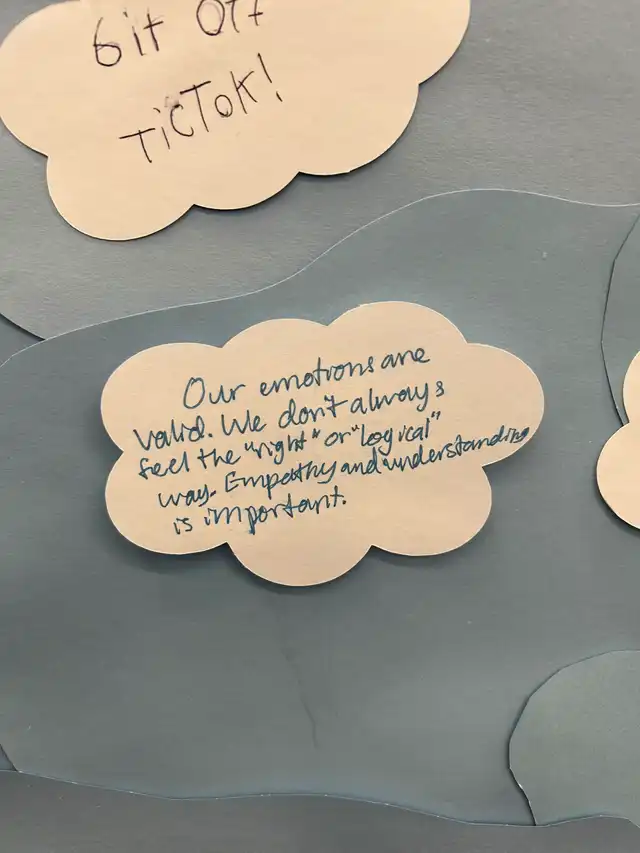 6it Off
TiCTok!
Our emotions are
valid. We don't always
feel the "right" or "logical"
way. Empathy and understanding
is important.